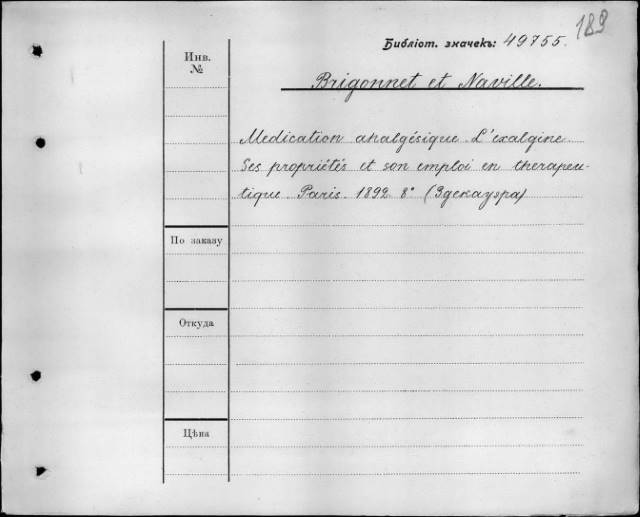 189
Библіот. значекъ: 49755.
Инв.
№
Brigonnet et Naville.
Medication analgésique. L'exalgine.
Ses propriétés et son emploi en therapeu-
tique. Paris. 1892. 8° (Здекауэра)
По заказу
Откуда
Цѣна